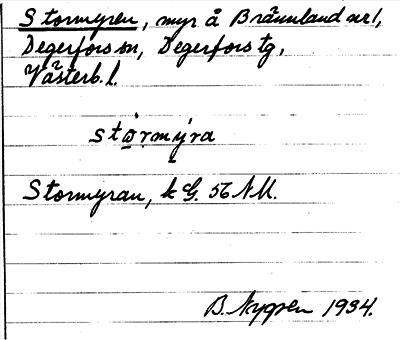 Stormyren, myr å Brännland nr 1,
Degerfors sn, Degerfors tg,
Västerb. l.
stọrmýra
Stormyran, k G. 56 NM.
B. Nygren 1934.